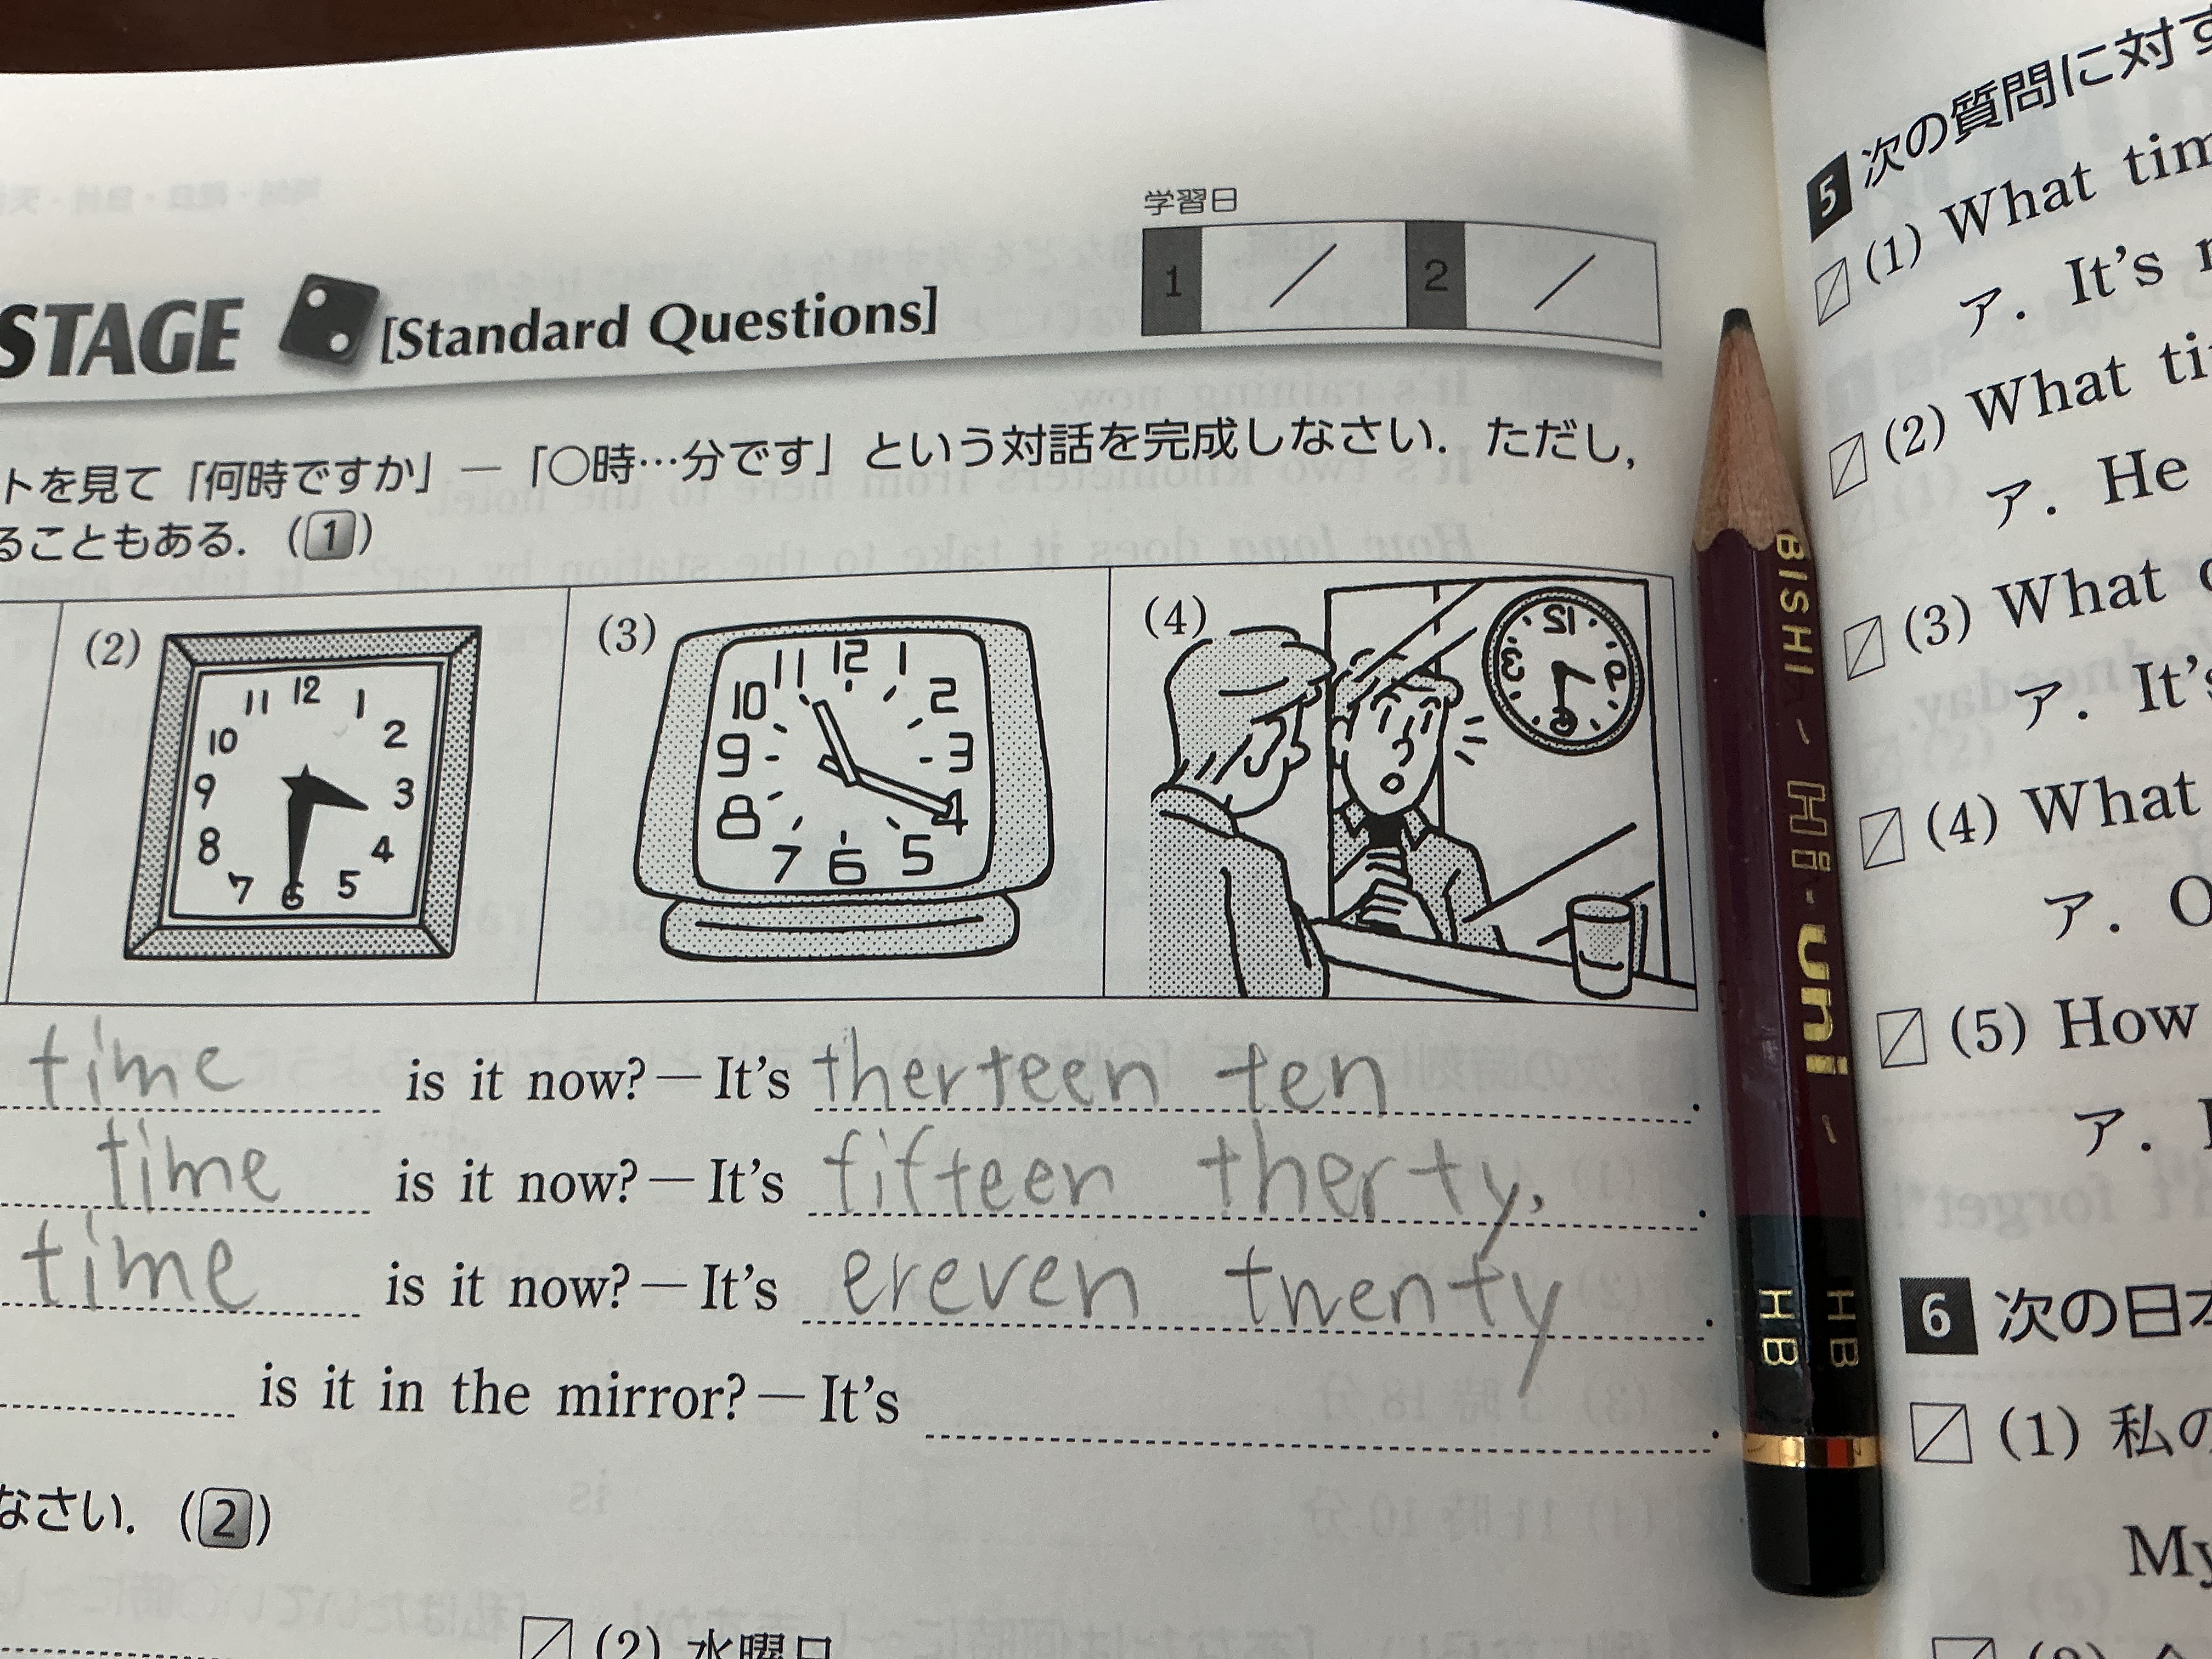 学習日
1 / 2 /
STAGE [Standard Questions]
トを見て「何時ですか」―「○時…分です」という対話を完成しなさい．ただし，
ることもある．（1）
(2)
12
11 1
10 2
9 3
8 4
7 6 5
(3)
11 12 1
10 2
9 3
8 4
7 6 5
(4)
12
3 9
6
time is it now?―It's therteen ten .
time is it now?―It's fifteen therty, .
time is it now?―It's ereven twenty .
is it in the mirror?―It's .
なさい．（2）
(2) 水曜日
BISHI Hi-uni
HB HB
5 次の質問に対す
(1) What tim
ア．It's
(2) What ti
ア．He
(3) What
ア．It's
(4) What
ア．O
(5) How
ア．
6 次の日本
(1) 私の
My